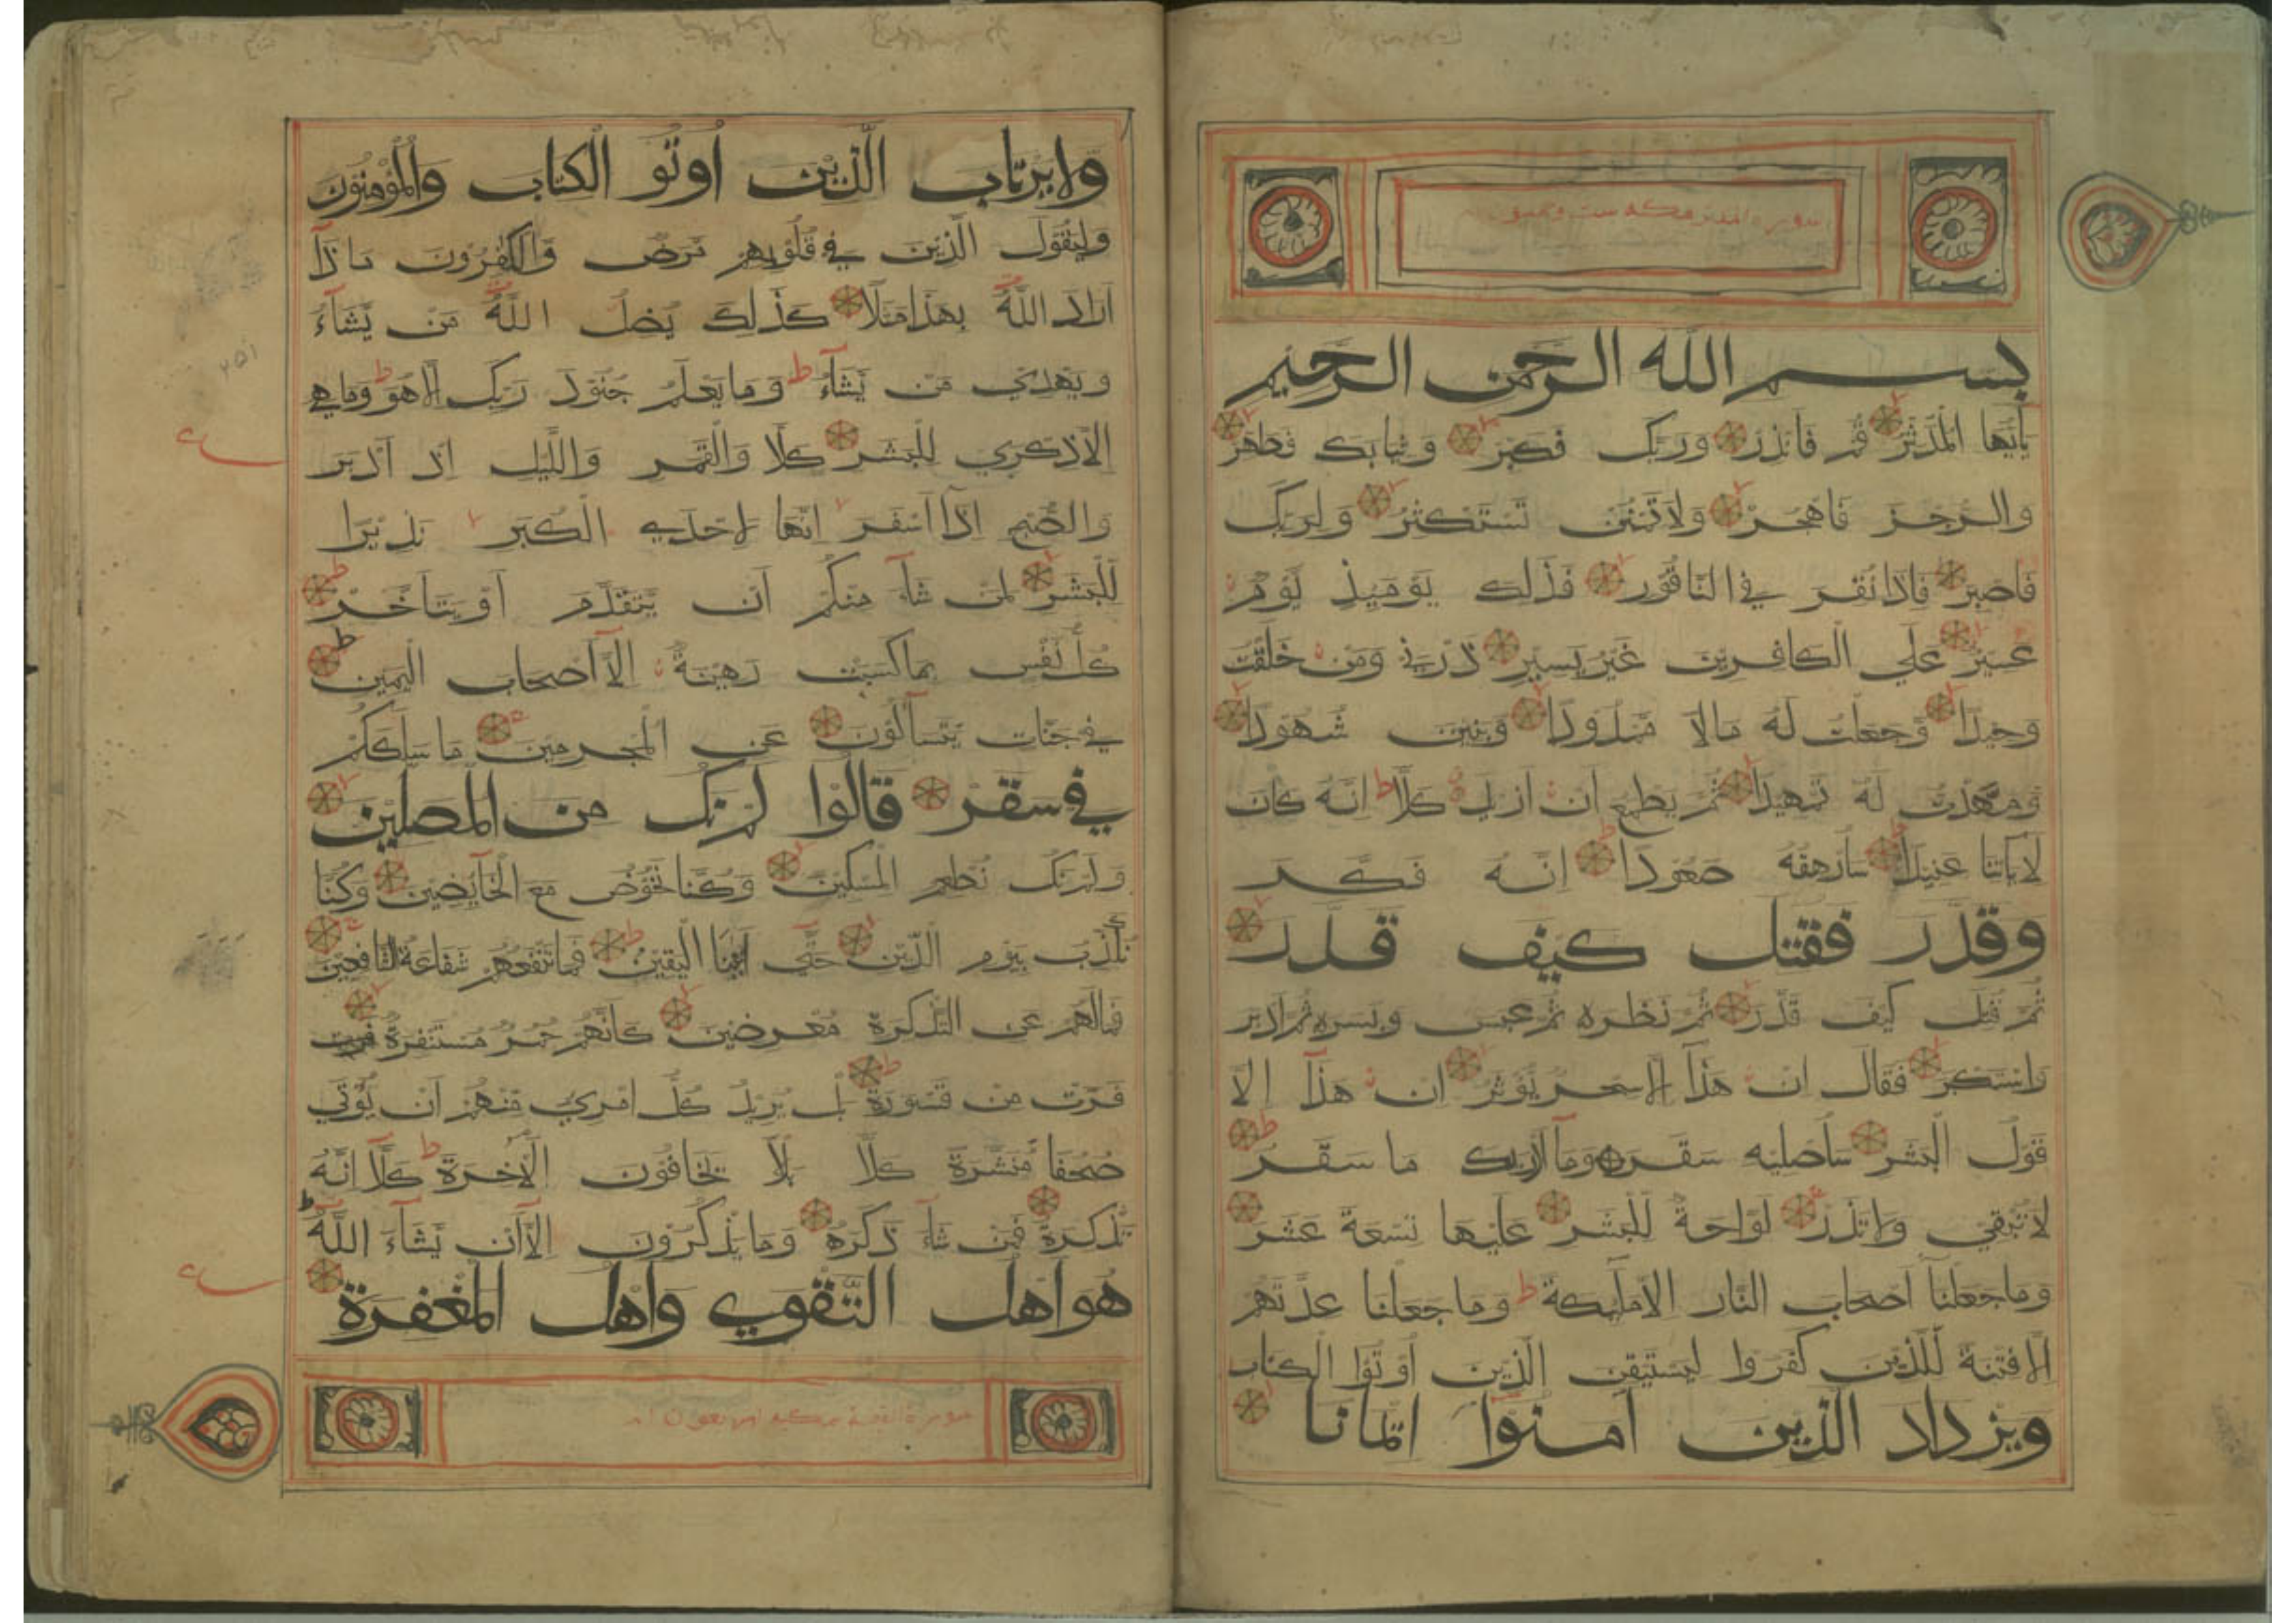 سورة المدثر مكية ست وخمسون اية
بسم الله الرحمن الرحيم
يأيها المدثر قم فانذر وربك فكبر وثيابك فطهر
والرجز فاهجر ولا تمنن تستكثر ولربك
فاصبر فاذا نقر في الناقور فذلك يوميذ يوم
عسير علي الكافرين غير يسير ذرني ومن خلقت
وحيدا وجعلت له مالا ممدودا وبنين شهودا
ومهدت له تمهيدا ثم يطمع ان ازيد كلا انه كان
لاياتنا عنيدا سأرهقه صعودا انه فكر
وقدر فقتل كيف قدر
ثم قتل كيف قدر ثم نظره ثم عبس وبسره ثم ادبر
واستكبر فقال ان هذا الا سحر يؤثر ان هذا الا
قول البشر سأصليه سقره وما ادريك ما سقر
لا تبقي ولا تذر لواحة للبشر عليها تسعة عشر
وما جعلنا اصحاب النار الا مليكة ط وما جعلنا عدتهم
الا فتنة للذين كفروا ليستيقن الذين اوتوا الكتاب
ويزداد الذين امنوا ايمانا
ولا يرتاب الذين اوتو الكتاب والمؤمنون
وليقول الذين في قلوبهم مرض والكفرون ماذا
اراد الله بهذا مثلا كذلك يضل الله من يشاء
ويهدي من يشاء ط وما يعلم جنود ربك الا هو ط وما هي
الا ذكري للبشر كلا والقمر والليل اذ ادبر
والصبح اذا اسفر انها لاحدي الكبر نذيرا
للبشر لمن شاء منكم ان يتقدم او يتاخر
كل نفس بما كسبت رهينة الا اصحاب اليمين
في جنات يتسآلون عن المجرمين ما سلككم
في سقر قالوا لم نك من المصلين
ولم نك نطعم المسكين وكنا نخوض مع الخايضين وكنا
نكذب بيوم الدين حتي اتينا اليقين فما تنفعهم شفاعة الشافعين
فما لهم عن التذكرة معرضين كانهم حمر مستنفرة فرت
فرت من قسورة بل يريد كل امري منهم ان يؤتي
صحفا منشرة كلا بل لا يخافون الاخرة ط كلا انه
تذكرة فمن شاء ذكره وما يذكرون الا ان يشاء الله
هو اهل التقوي واهل المغفرة
سورة القيمة مكية اربعون اية
٢٥١